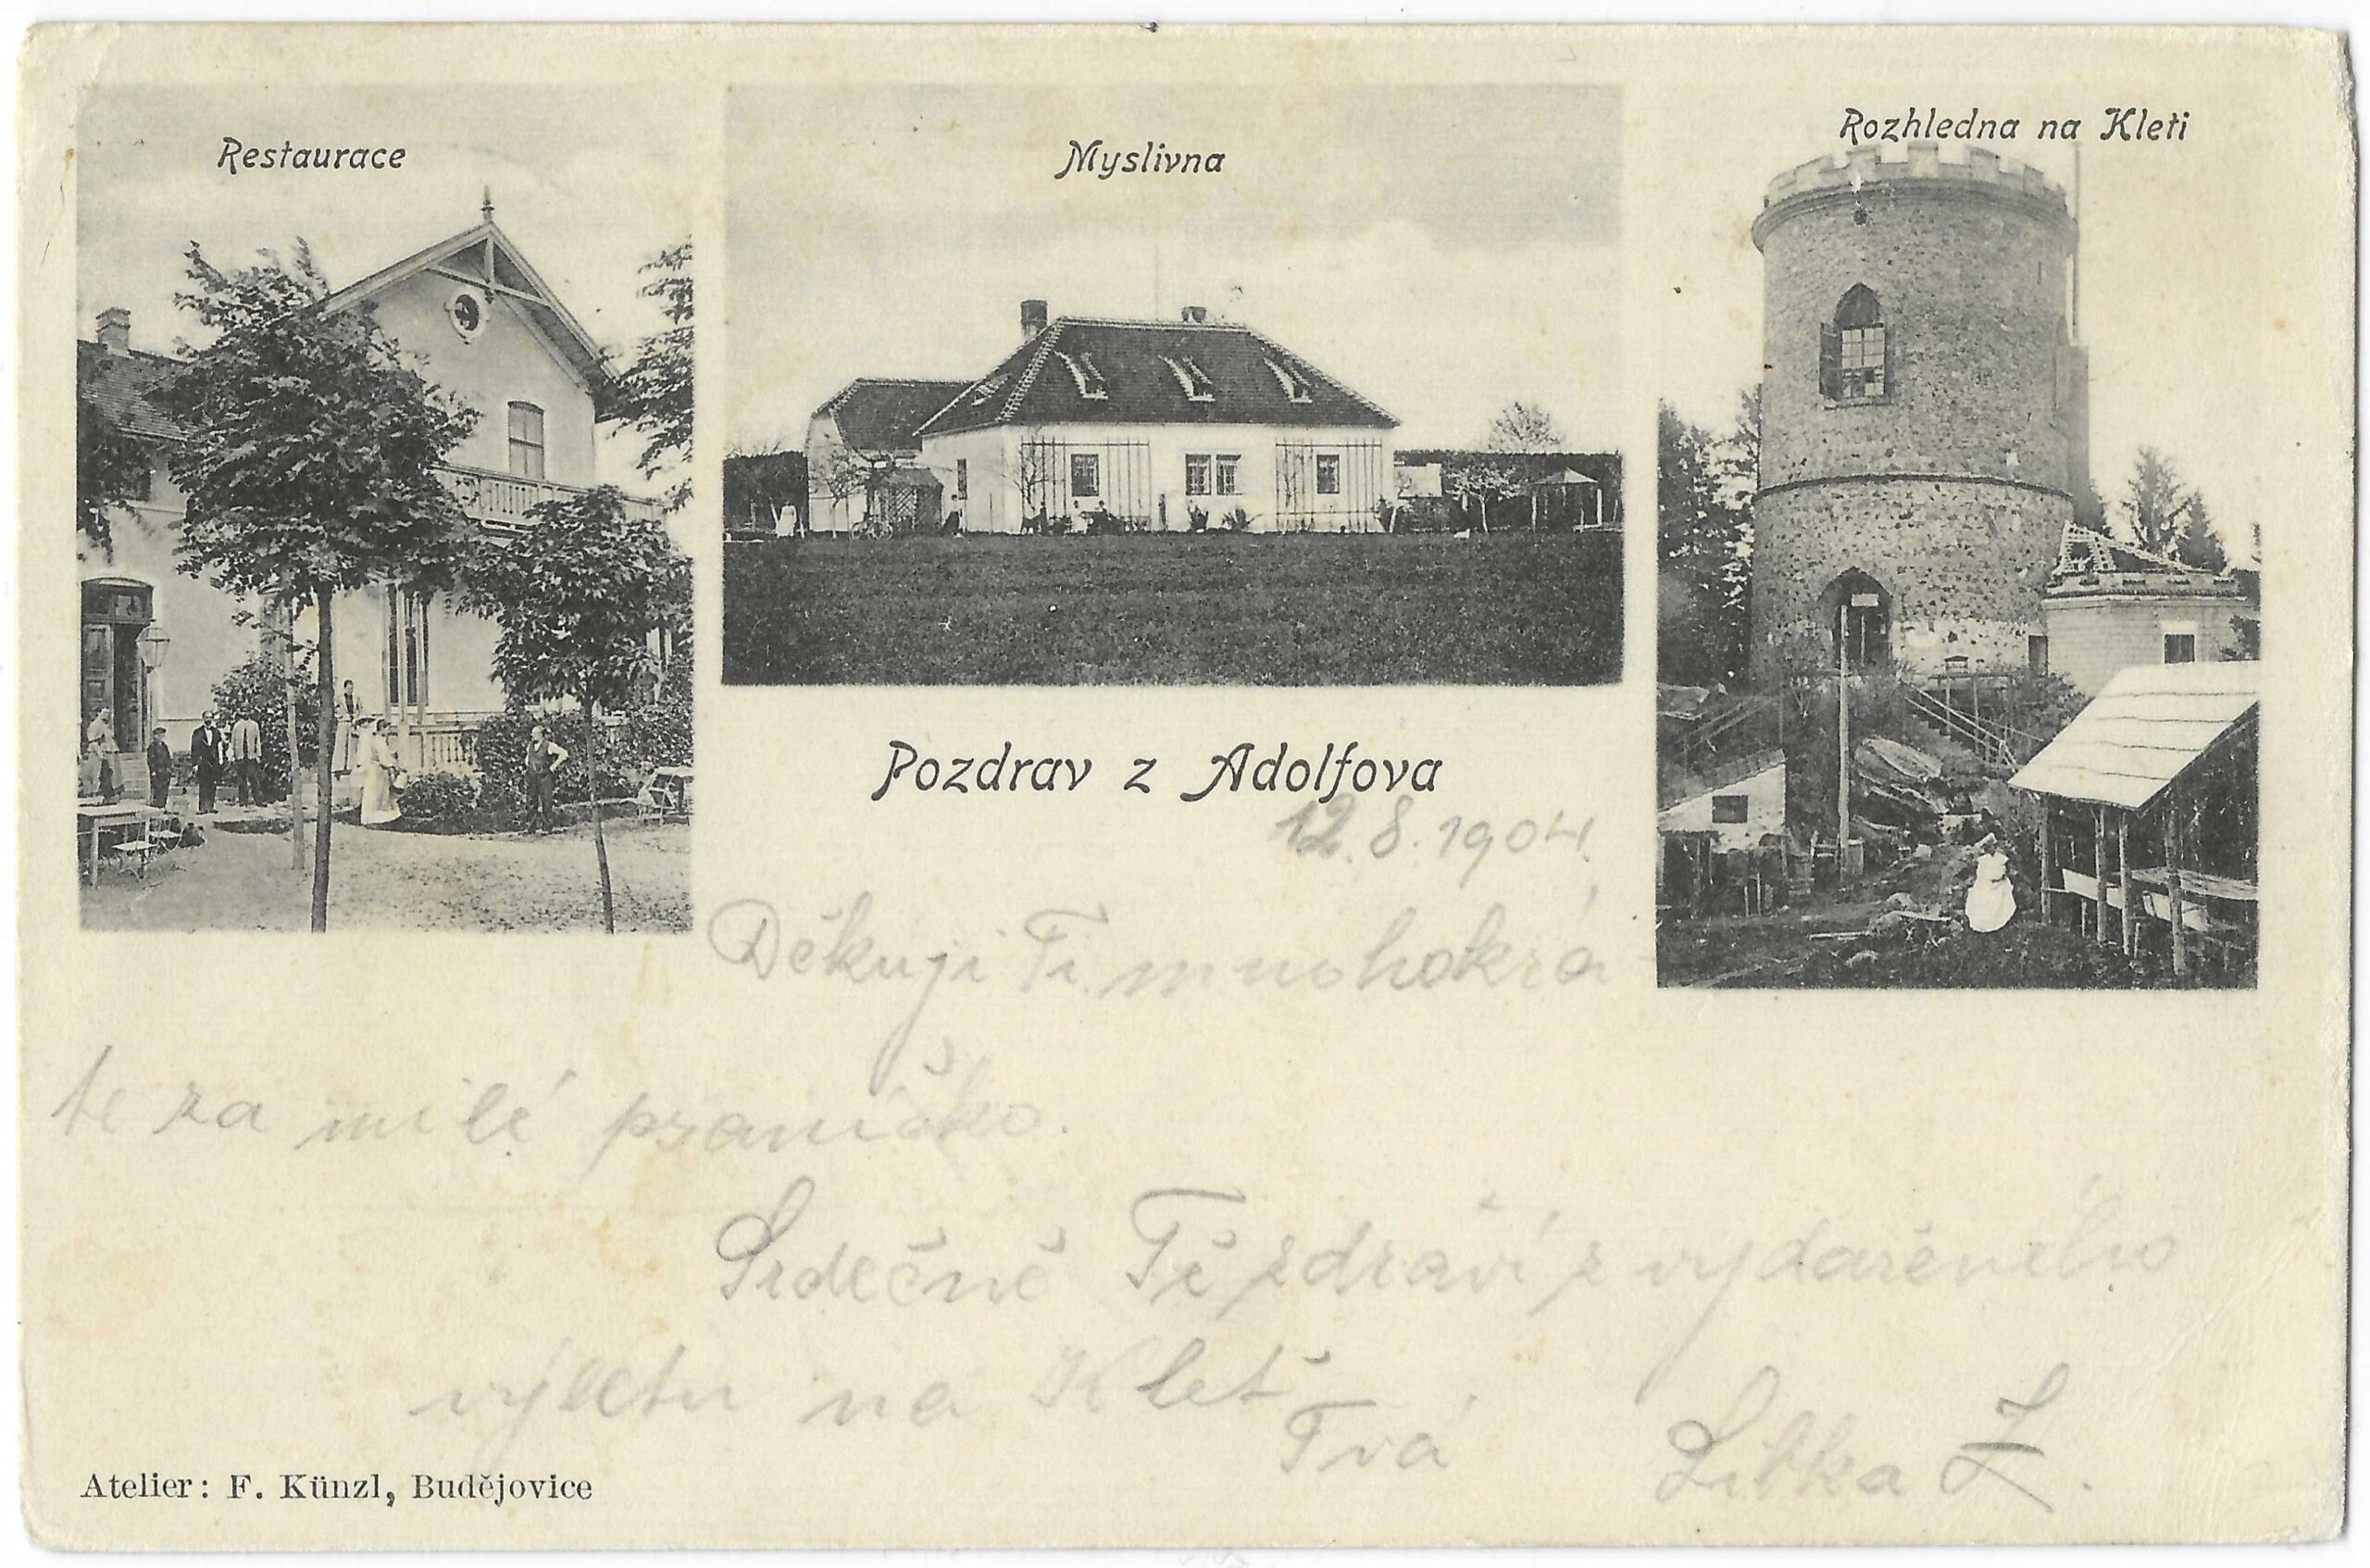 Restaurace
Myslivna
Rozhledna na Kleti
Pozdrav z Adolfova
12.8.1904.
Děkuji Ti mnohokrá-
te za milé praníčko.
Srdečně Tě zdraví z vydařeného
výletu na Kleť
Tvá Libka Z.
Atelier: F. Künzl, Budějovice